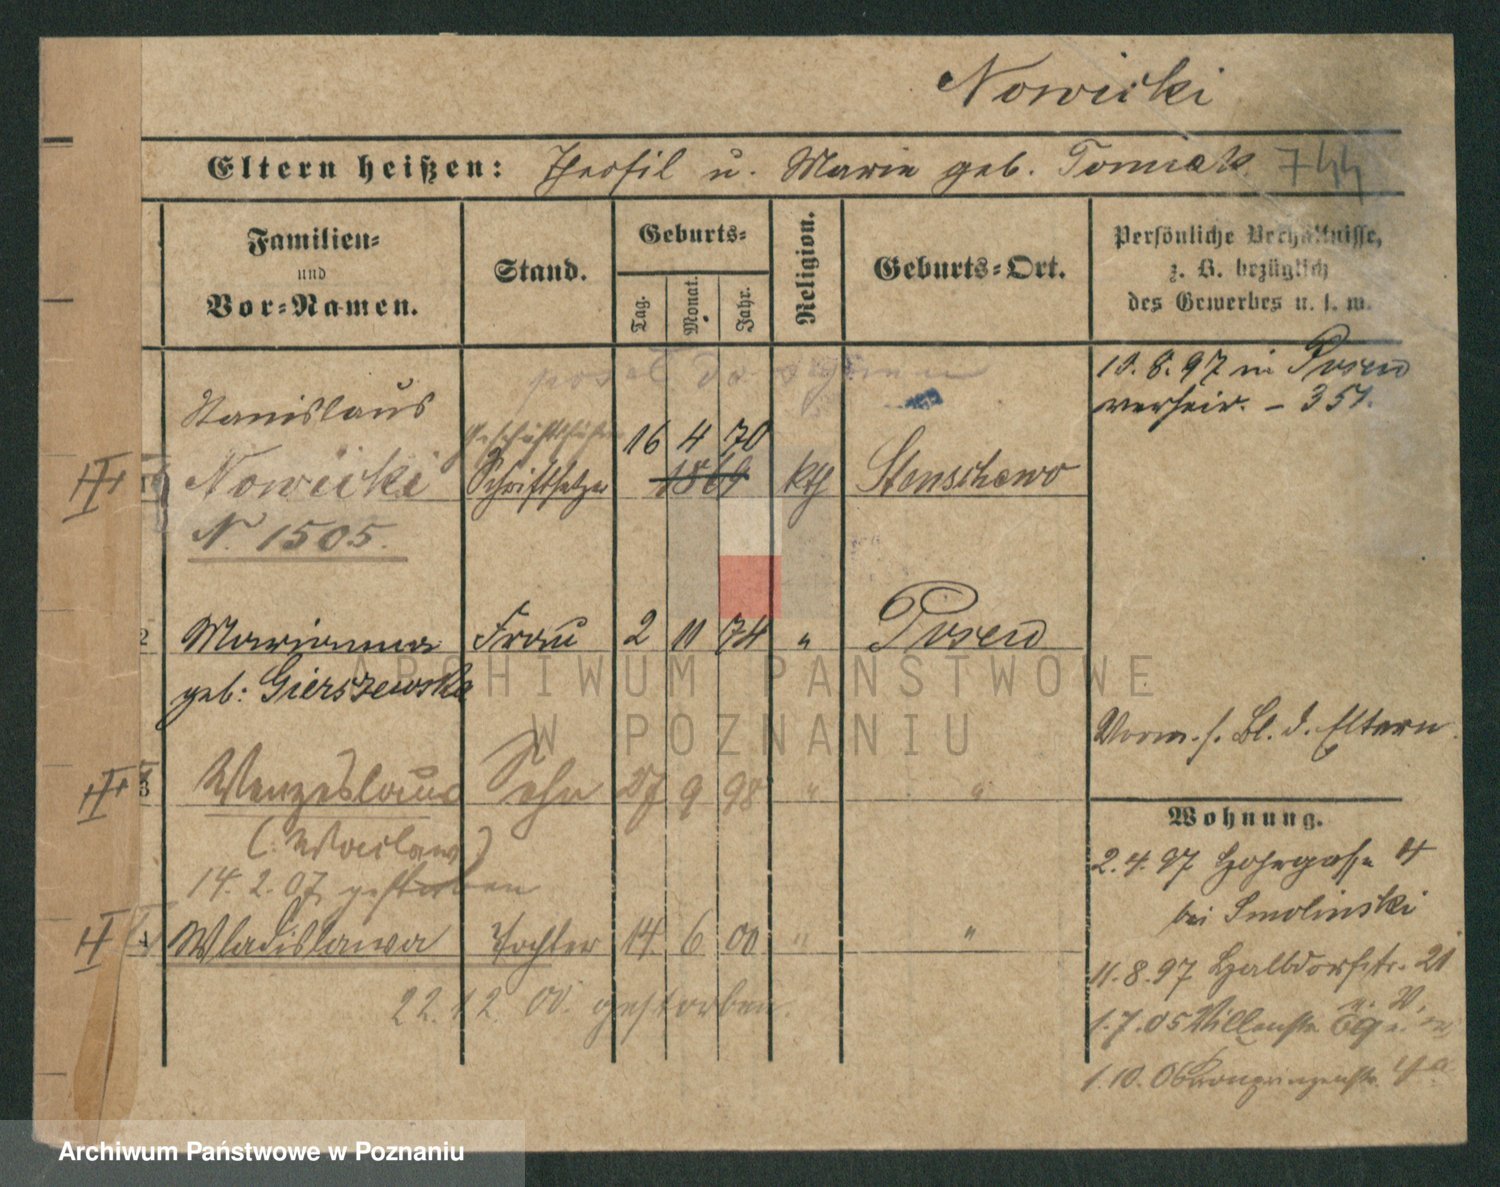 Nowicki
Eltern heißen: Theofil u. Marie geb. Tomiak 744
Familien-
und
Vor-Namen.
Stand.
Geburts-
Tag.
Monat.
Jahr.
Religion.
Geburts-Ort.
Persönliche Verhältnisse,
z. B. bezüglich
des Gewerbes u. s. w.
10.8.97 in Posen
verheir. - 351.
Stanislaus
Nowicki
Schriftsetzer
16 4 70
1869
kth
Stenschewo
N. 1505.
2 Marianna Frau 2 11 74 " Posen
geb: Gierszewska
Vorm. s. Bl. d. Eltern.
3 Wenzeslaus Sohn 27 9 98 " "
(Waclaw)
14. 2. 07. gestorben
4 Wladislawa Tochter 14. 6 00 " "
22.12.00. gestorben.
Wohnung.
2.4.97 Hohegasse 4
bei Smolinski
11.8.97 Halbdorfstr. 21
1.7.05 Villenstr.
1.10.06 Kronprinzenstr. 4a
ARCHIWUM PAŃSTWOWE
W POZNANIU
Archiwum Państwowe w Poznaniu